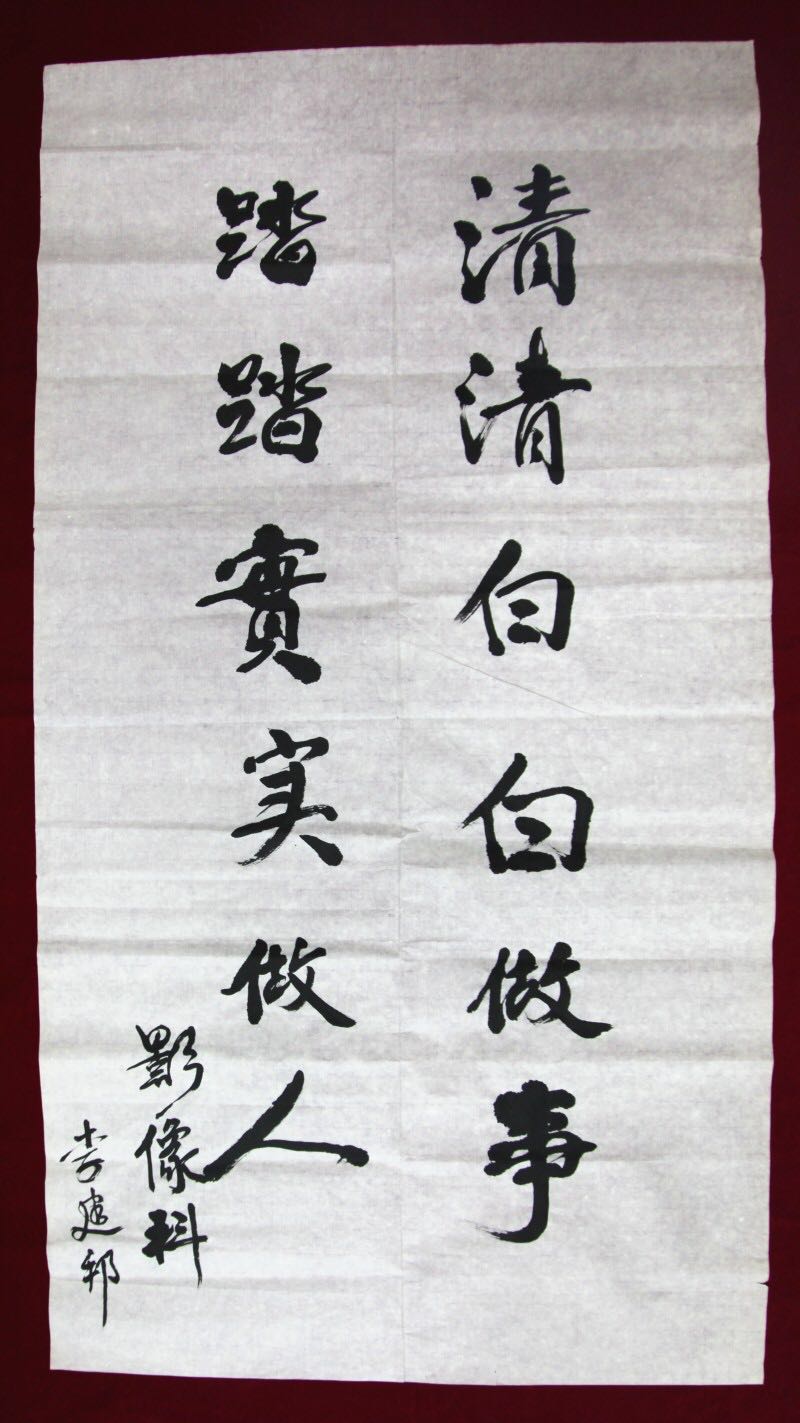 清清白白做事
踏踏實实做人
影像科
李建邦